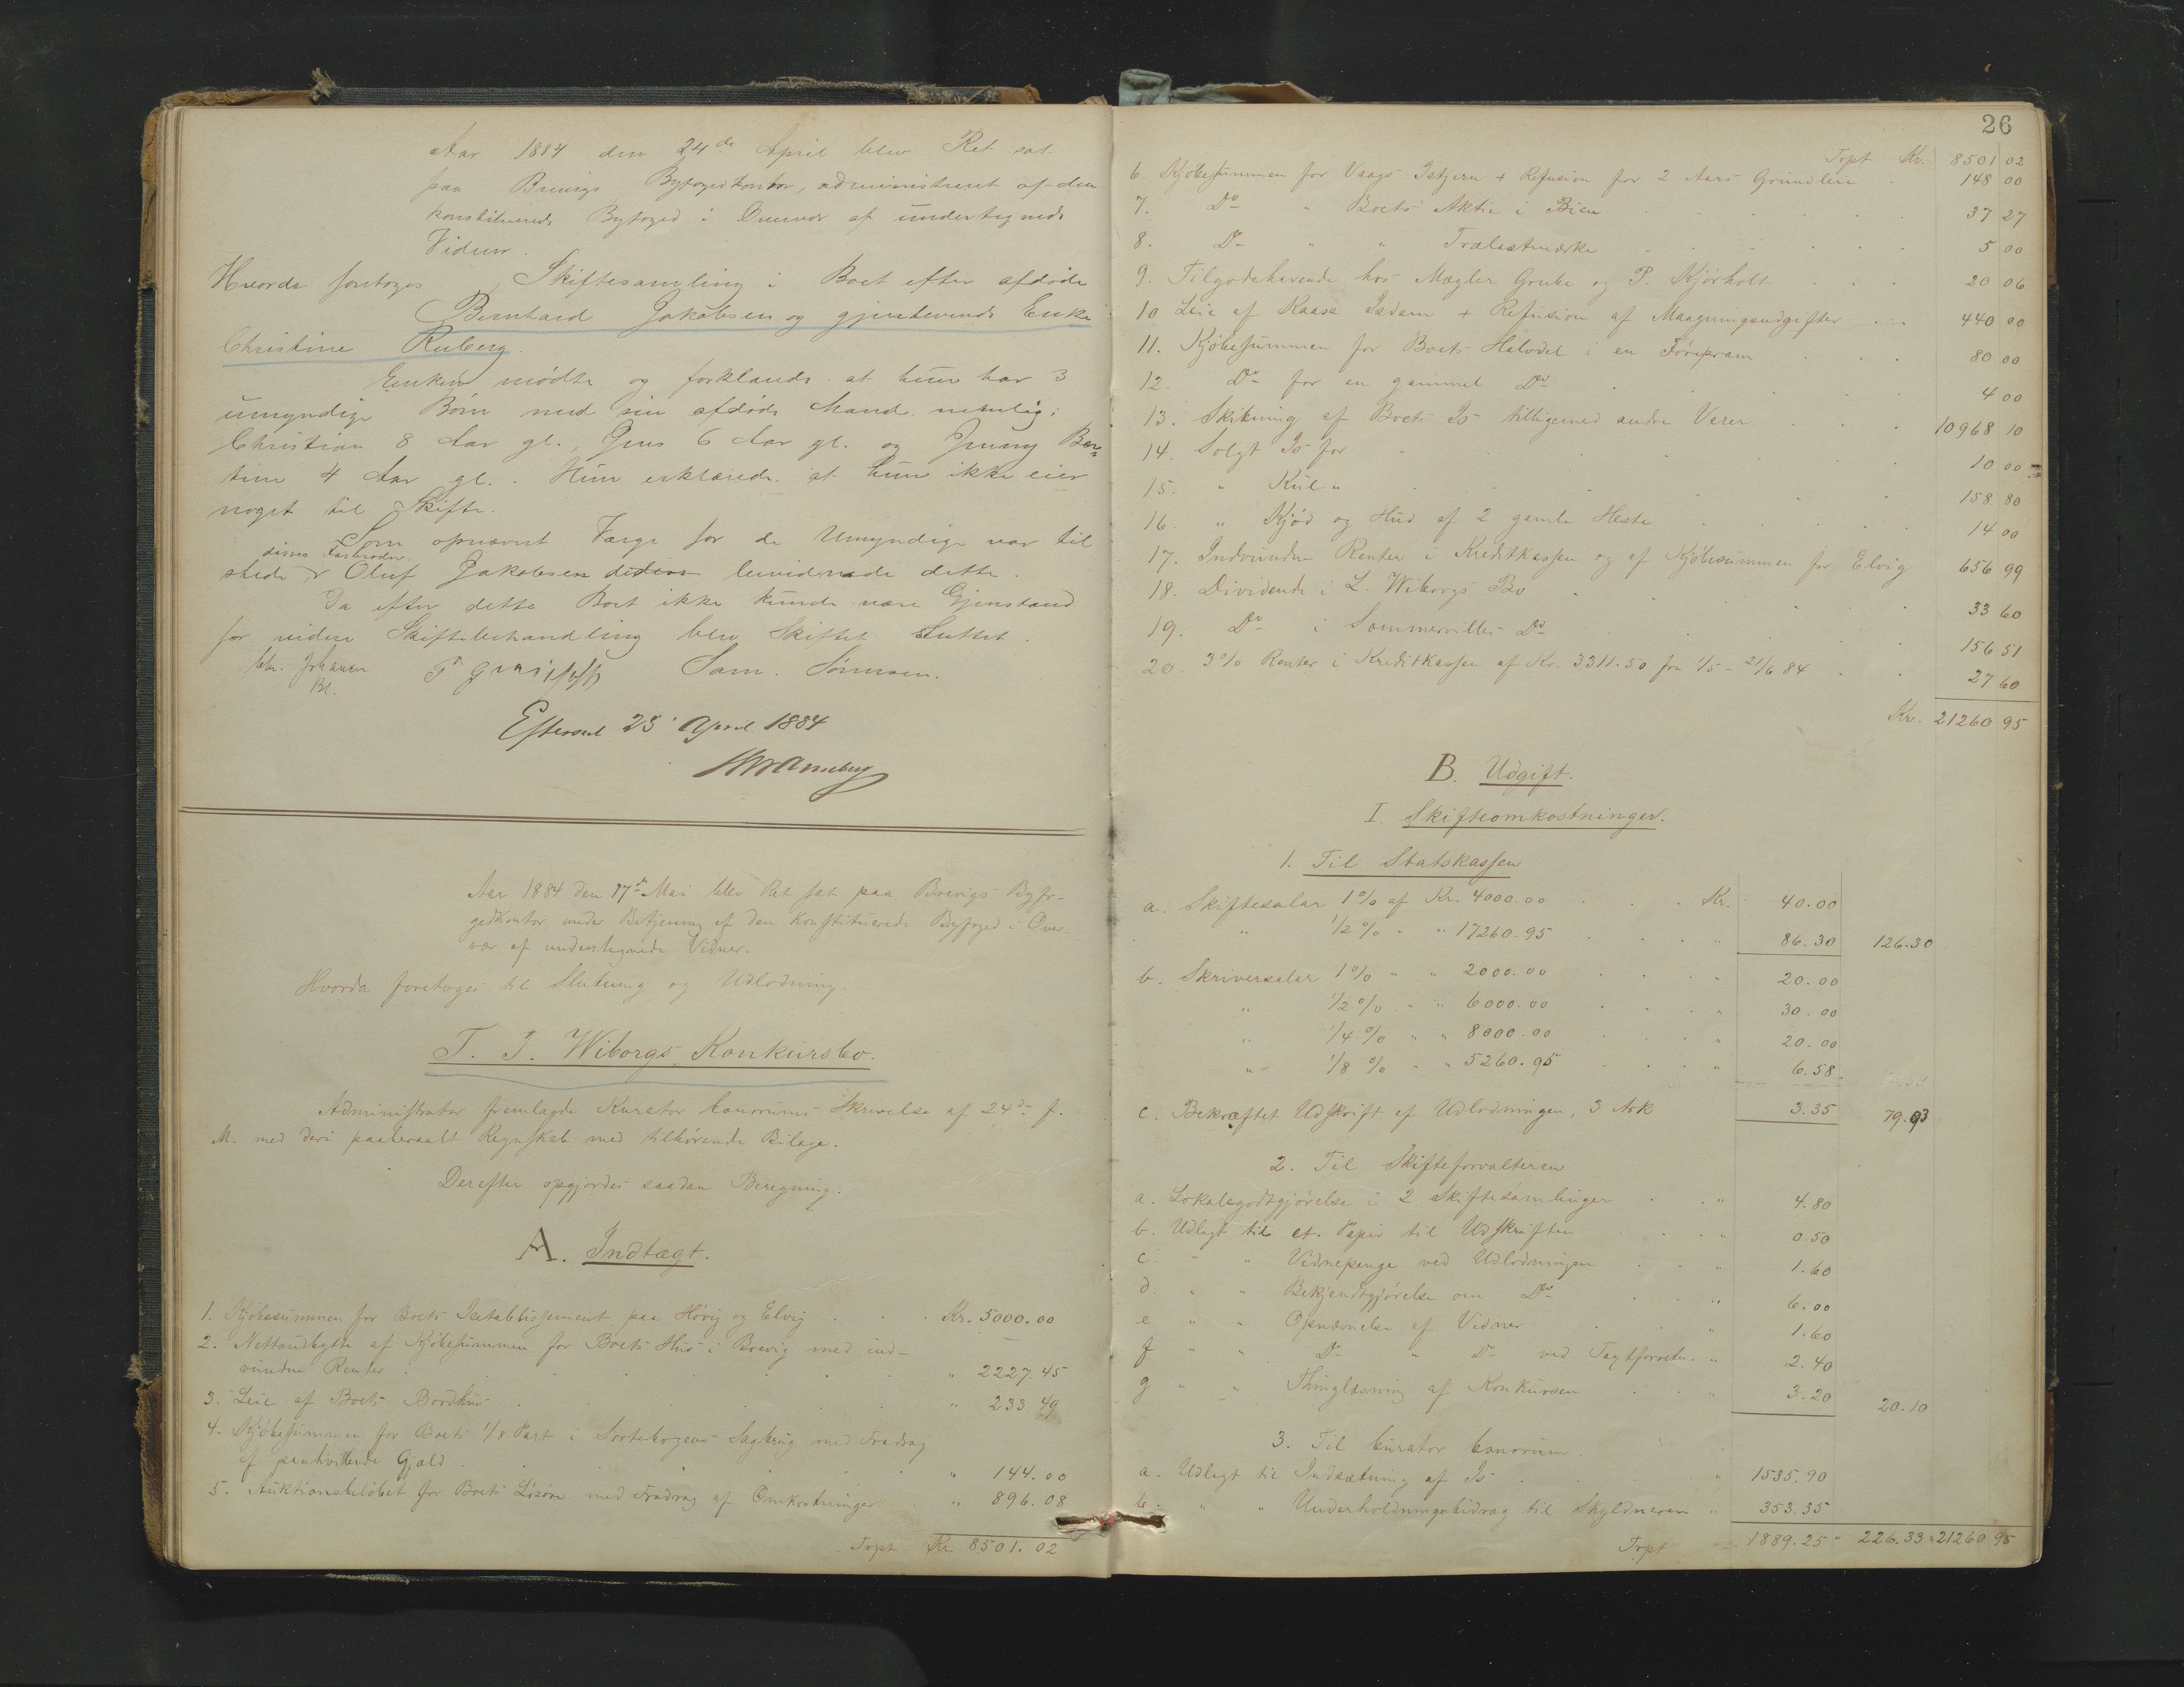 Aar 1884 den 24de April blev Ret sat
paa Brevigs Byfogedkontor, administreret af den
konstituerede Byfoged i Overvær af undertegnede
Vidner.
Hvorda foretoges Skiftesamling i Boet efter afdøde
Bernhard Jakobsen og gjenlevende Enke
Christine Ruberg.
Enken mødte og forklarede at hun har 3
umyndige Børn med sin afdøde Mand nemlig:
Christian 8 Aar gl., Jens 6 Aar gl. og Jenny Ber-
tine 4 Aar gl. Hun erklærede at hun ikke eier
noget til Skifte.
Som opnævnt Værge for de Umyndige var til
disses Farbroder
stede Oluf Jakobsen bevidnede dette.
Da efter dette Boet ikke kunde være Gjenstand
for videre Skiftebehandling blev Skiftet sluttet.
Chr. Johansen Sam. Sørensen.
Bf.
Efterseet 25 April 1884
Aar 1884 den 17de Mai blev Ret sat paa Brevigs Byfo-
gedkontor under Betjening af den konstituerede Byfoged i Over-
vær af undertegnede Vidner.
Hvorda foretoges til Slutning og Udlodning
T. J. Wiborgs Konkursbo.
Administrator fremlagde Kurator bonorums Skrivelse af 24de f.
M. med deri paaberaabt Regnskab med tilhørende Bilage.
Derefter opgjordes saadan Beregning:
A. Indtægt.
1. Kjøbesummen for Boets Isetablissement paa Høvig og Elvig . . . Kr. 5000.00
2. Nettoudbytte af Kjøbesummen for Boets Hus i Brevig med ind-
vundne Renter . . . " 2227.45
3. Leie af Boets Bordhus . . . " 233.49
4. Kjøbesummen for Boets 1/8 Part i Sagbrug med Fradrag
af paahvilende Gjæld . . . " 144.00
5. Auktionsbeløbet for Boets Løsøre med Fradrag af Omkostninger " 896.08
Trpt Kr 8501.02
26
Trpt Kr. 8501 02
6. Kjøbesummen for Vaags Istjern + Refusion for 2 Aars Grundleie . 148 00
7. Do " Boets Aktie i Bien . . . 37 27
8. Do " " Trælastmærke . . . 5 00
9. Tilgodehavende hos Mægler Grube og P. Kjørholt . . . 20 06
10 Leie af Raasa Isdam + Refusion af Maagrungsudgifter . . 440 00
11. Kjøbesummen for Boets Halvdel i en Førepram . . . 80 00
12. Do for en gammel Do . . . 4 00
13. Skibning af Boets Is tilligemed andre Varer . . . 10968 10
14. Solgt Is for . . . 10 00
15. " Kul " . . . 158 80
16. " Kjød og Hud af 2 gamle Heste . . . 14 00
17. Indvundne Renter i Kreditkassen og af Kjøbesummen for Elvig 656 99
18. Dividende i L. Wiborgs Bo . . . 33 60
19. Do i Sommervilles Do . . . 156 51
20. 3% Renter i Kreditkassen af Kr. 3311.50 fra 1/5 - 21/6 84 . . 27 60
Kr. 21260 95
B. Udgift.
I. Skifteomkostninger.
1. Til Statskassen
a. Skiftesalar 1% af Kr. 4000.00 . . . Kr. 40.00
" 1/2% " " 17260.95 . . . " 86.30 126.30
b. Skriversalar 1% " " 2000.00 . . . " 20.00
" 1/2% " " 6000.00 . . . " 30.00
" 1/4% " " 8000.00 . . . " 20.00
" 1/8% " " 5260.95 . . . " 6.58
c. Bekræftet Udskrift af Udlodningen, 3 Ark 3.35 79.93
2. Til Skifteforvalteren
a. Lokalegodtgjørelse i 2 Skiftesamlinger . . " 4.80
b. Udlagt til ct. Papir til Udskriften . . . " 0.50
c. " " Vidnepenge ved Udlodningen . . " 1.60
d. " " Bekjendtgjørelse om Do . . " 6.00
e " " Opnævnelse af Vidner . . " 1.60
f " " Do " Do ved Taxtforretn. " 2.40
g " " Thinglæsning af Konkursen . . " 3.20 20.10
3. Til Curator bonorum.
a. Udlagt til Indsætning af Is . . . " 1535.90
b. " " Underholdningsbidrag til Skyldneren " 353.35
Trpt " 1889.25 " 226.33 " 21260 95